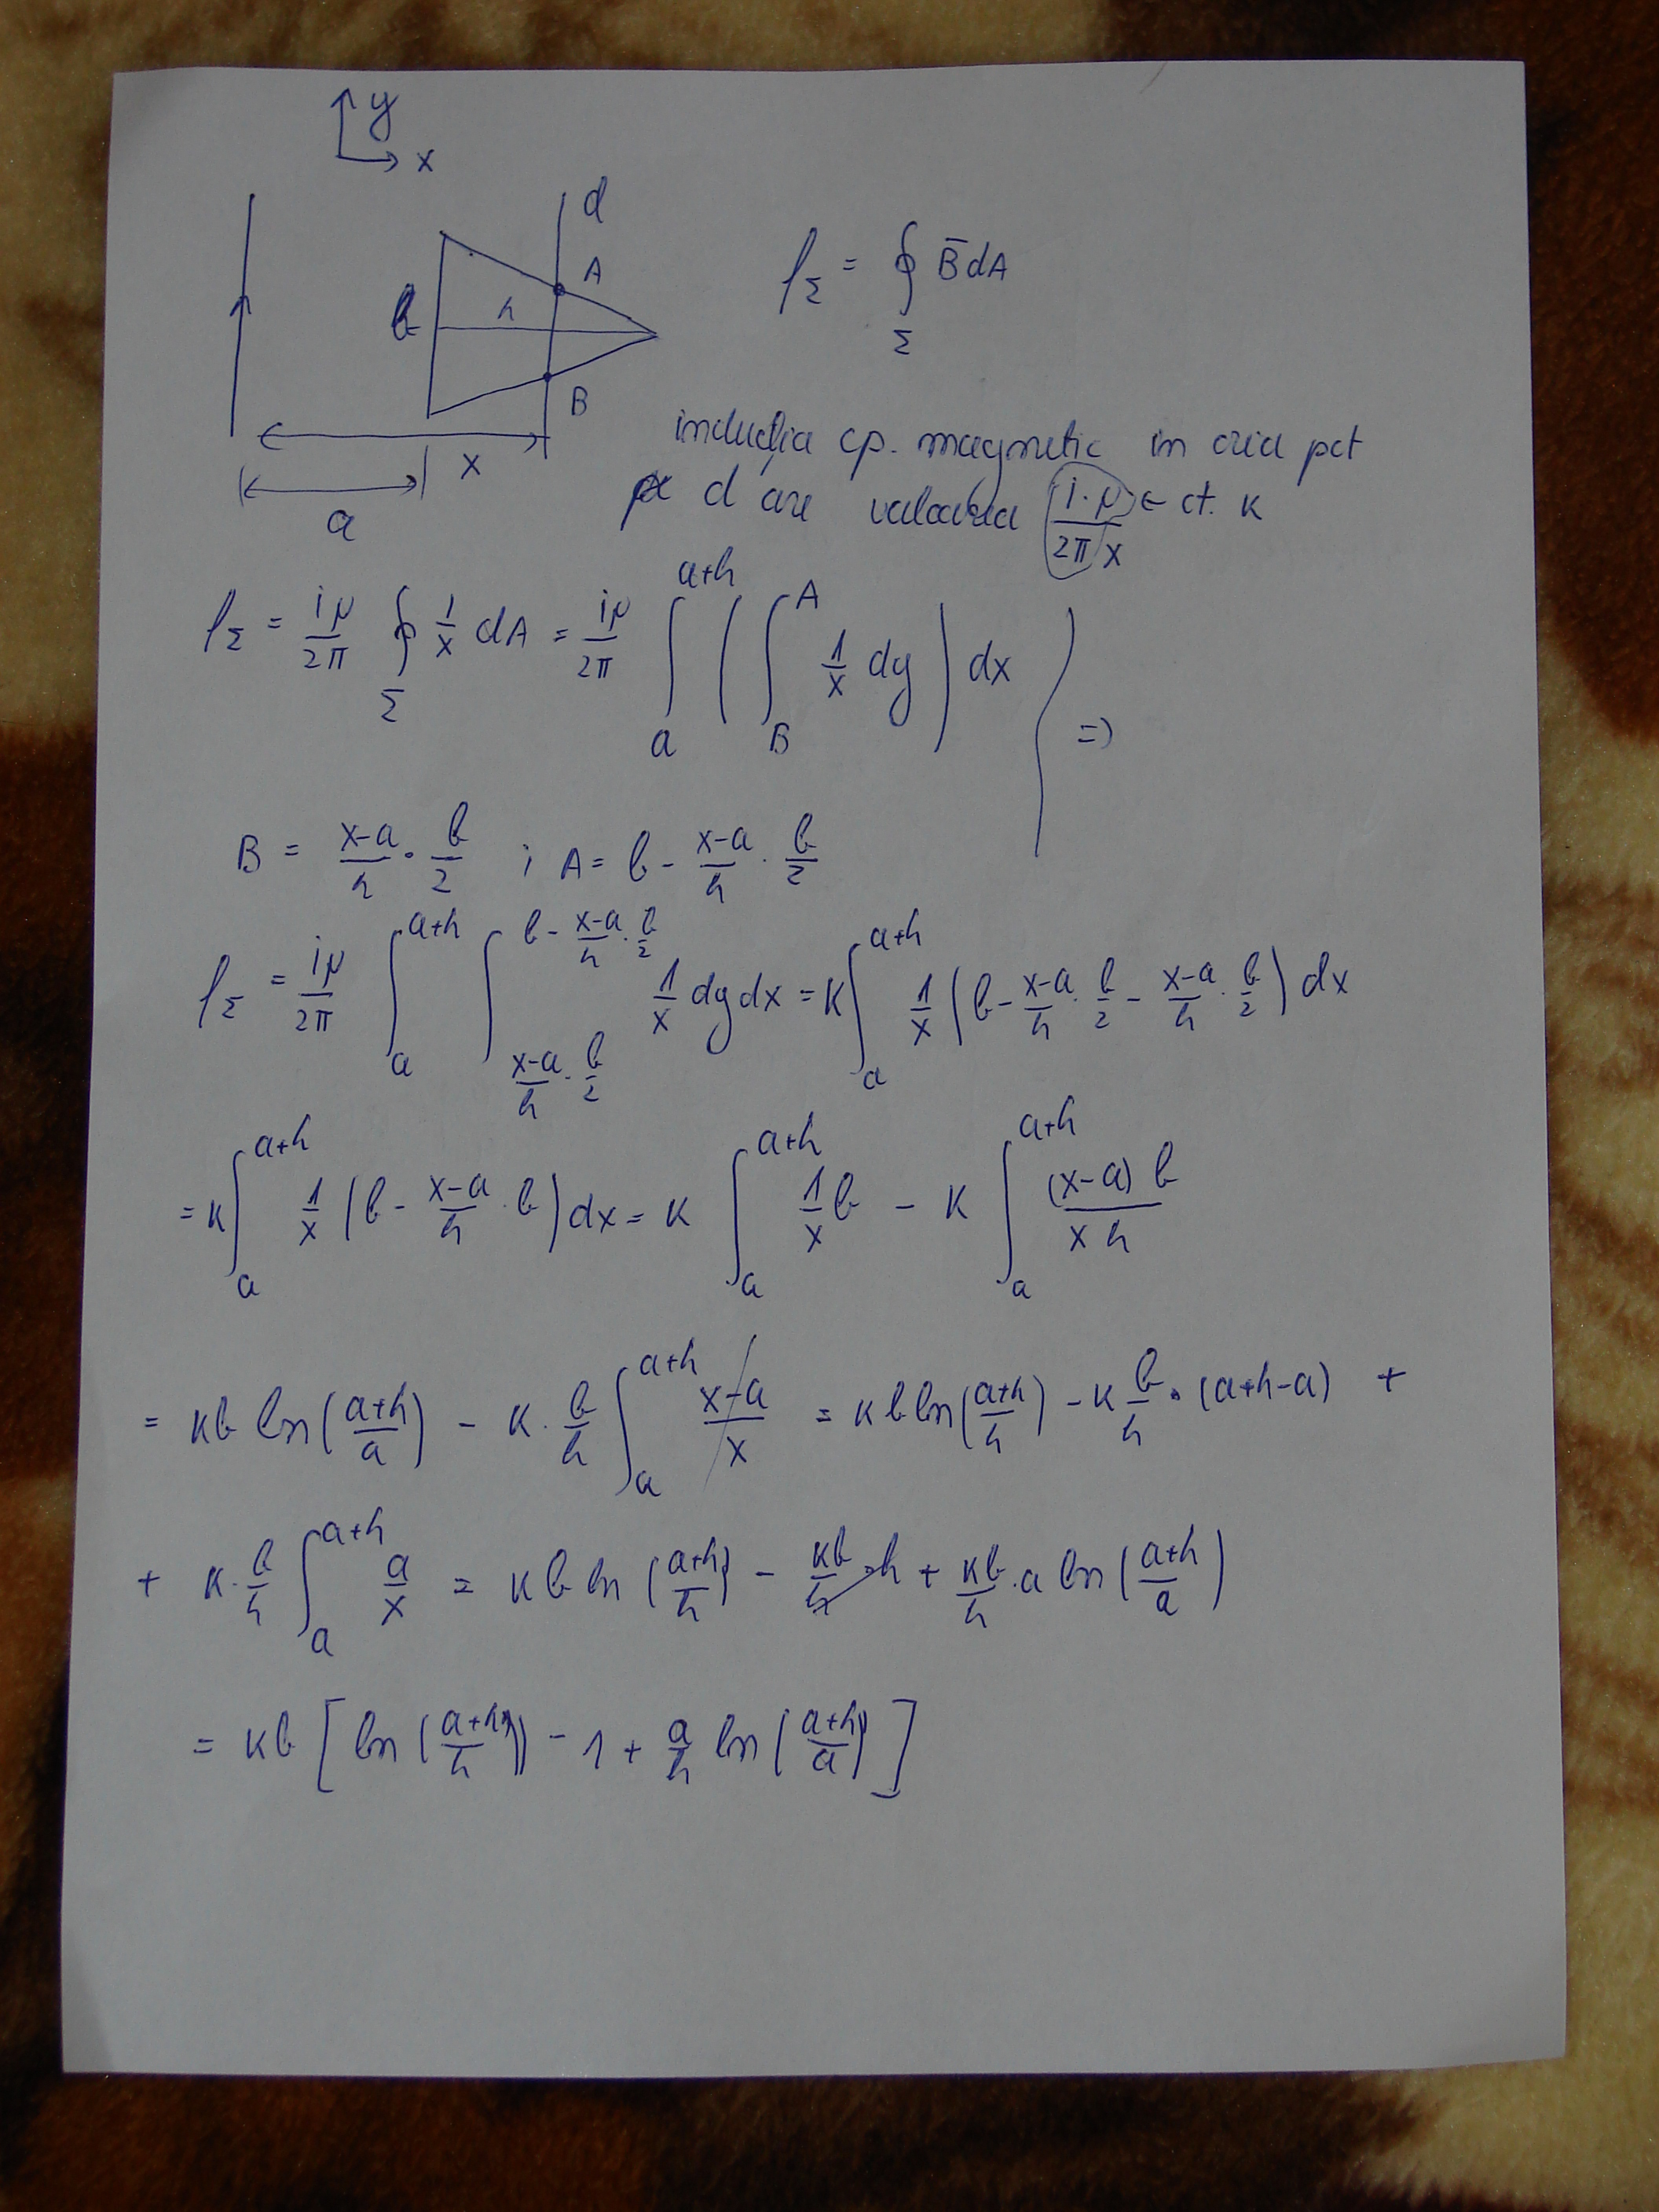 y
x
d
A
b
h
B
x
a
f_Σ = ∮_Σ B̄ dA
inducția cp. magnetic in oria pct
pe d are valoarea i·μ/2πx ← ct. K
f_Σ = iμ/2π ∮_Σ 1/x dA = iμ/2π ∫_a^{a+h} ( ∫_B^A 1/x dy ) dx } =>
B = x-a/h · b/2 ; A = b - x-a/h · b/2
f_Σ = iμ/2π ∫_a^{a+h} ∫_{x-a/h · b/2}^{b - x-a/h · b/2} 1/x dy dx = K ∫_a^{a+h} 1/x ( b - x-a/h · b/2 - x-a/h · b/2 ) dx
= K ∫_a^{a+h} 1/x ( b - x-a/h · b ) dx = K ∫_a^{a+h} 1/x b - K ∫_a^{a+h} (x-a) b/x h
= Kb ln(a+h/a) - K · b/h ∫_a^{a+h} x-a/x = K b ln(a+h/h) - K b/h · (a+h-a) +
+ K · b/h ∫_a^{a+h} a/x = K b ln(a+h/h) - Kb/h · h + Kb/h · a ln(a+h/a)
= Kb [ ln(a+h/h) - 1 + a/h ln(a+h/a) ]